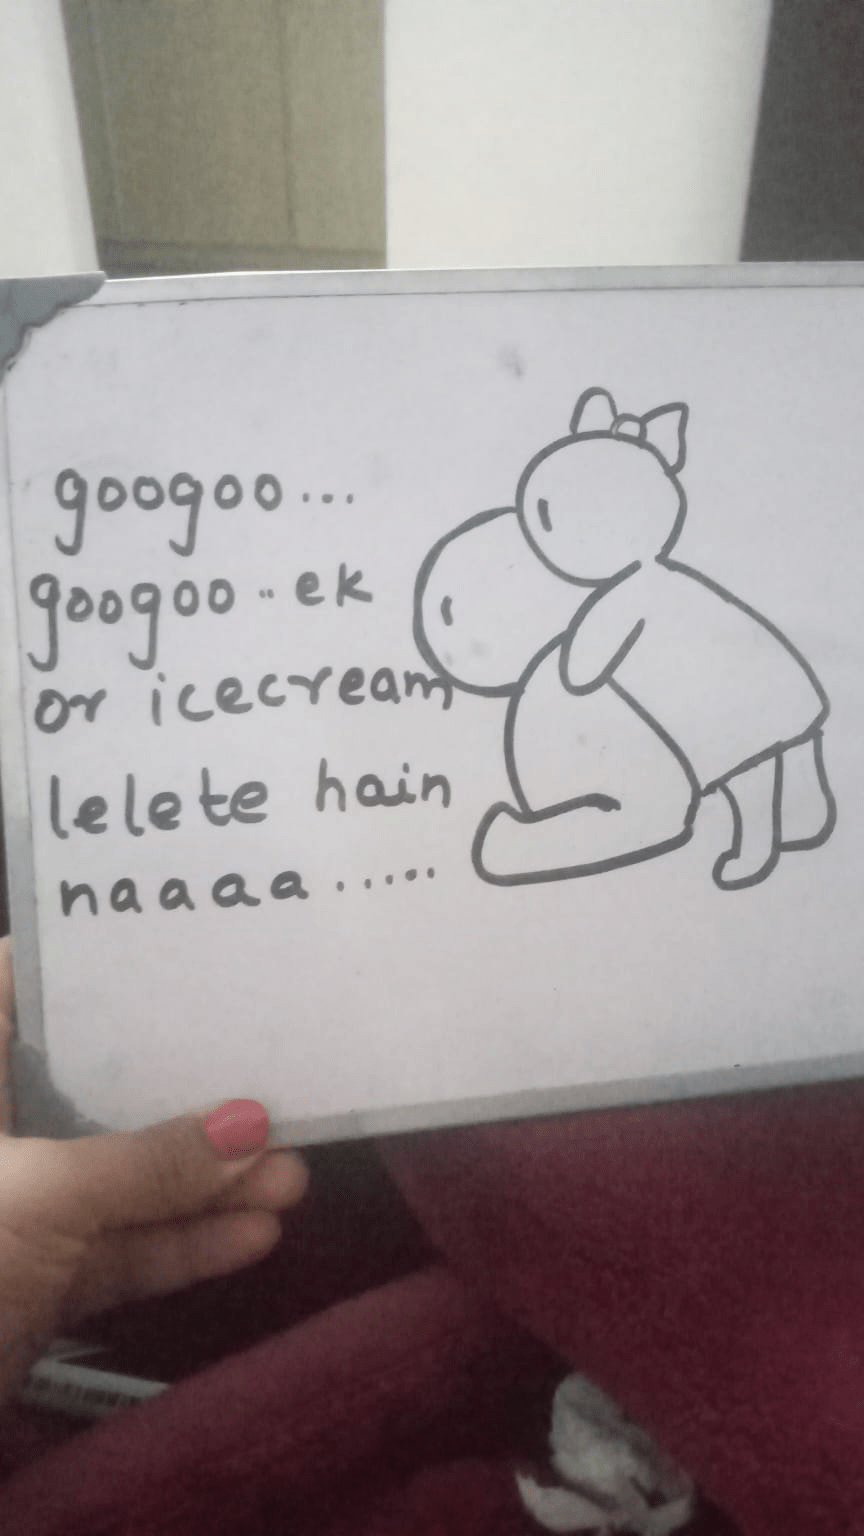 googoo...
googoo..ek
or icecream
lelete hain
naaaa.....